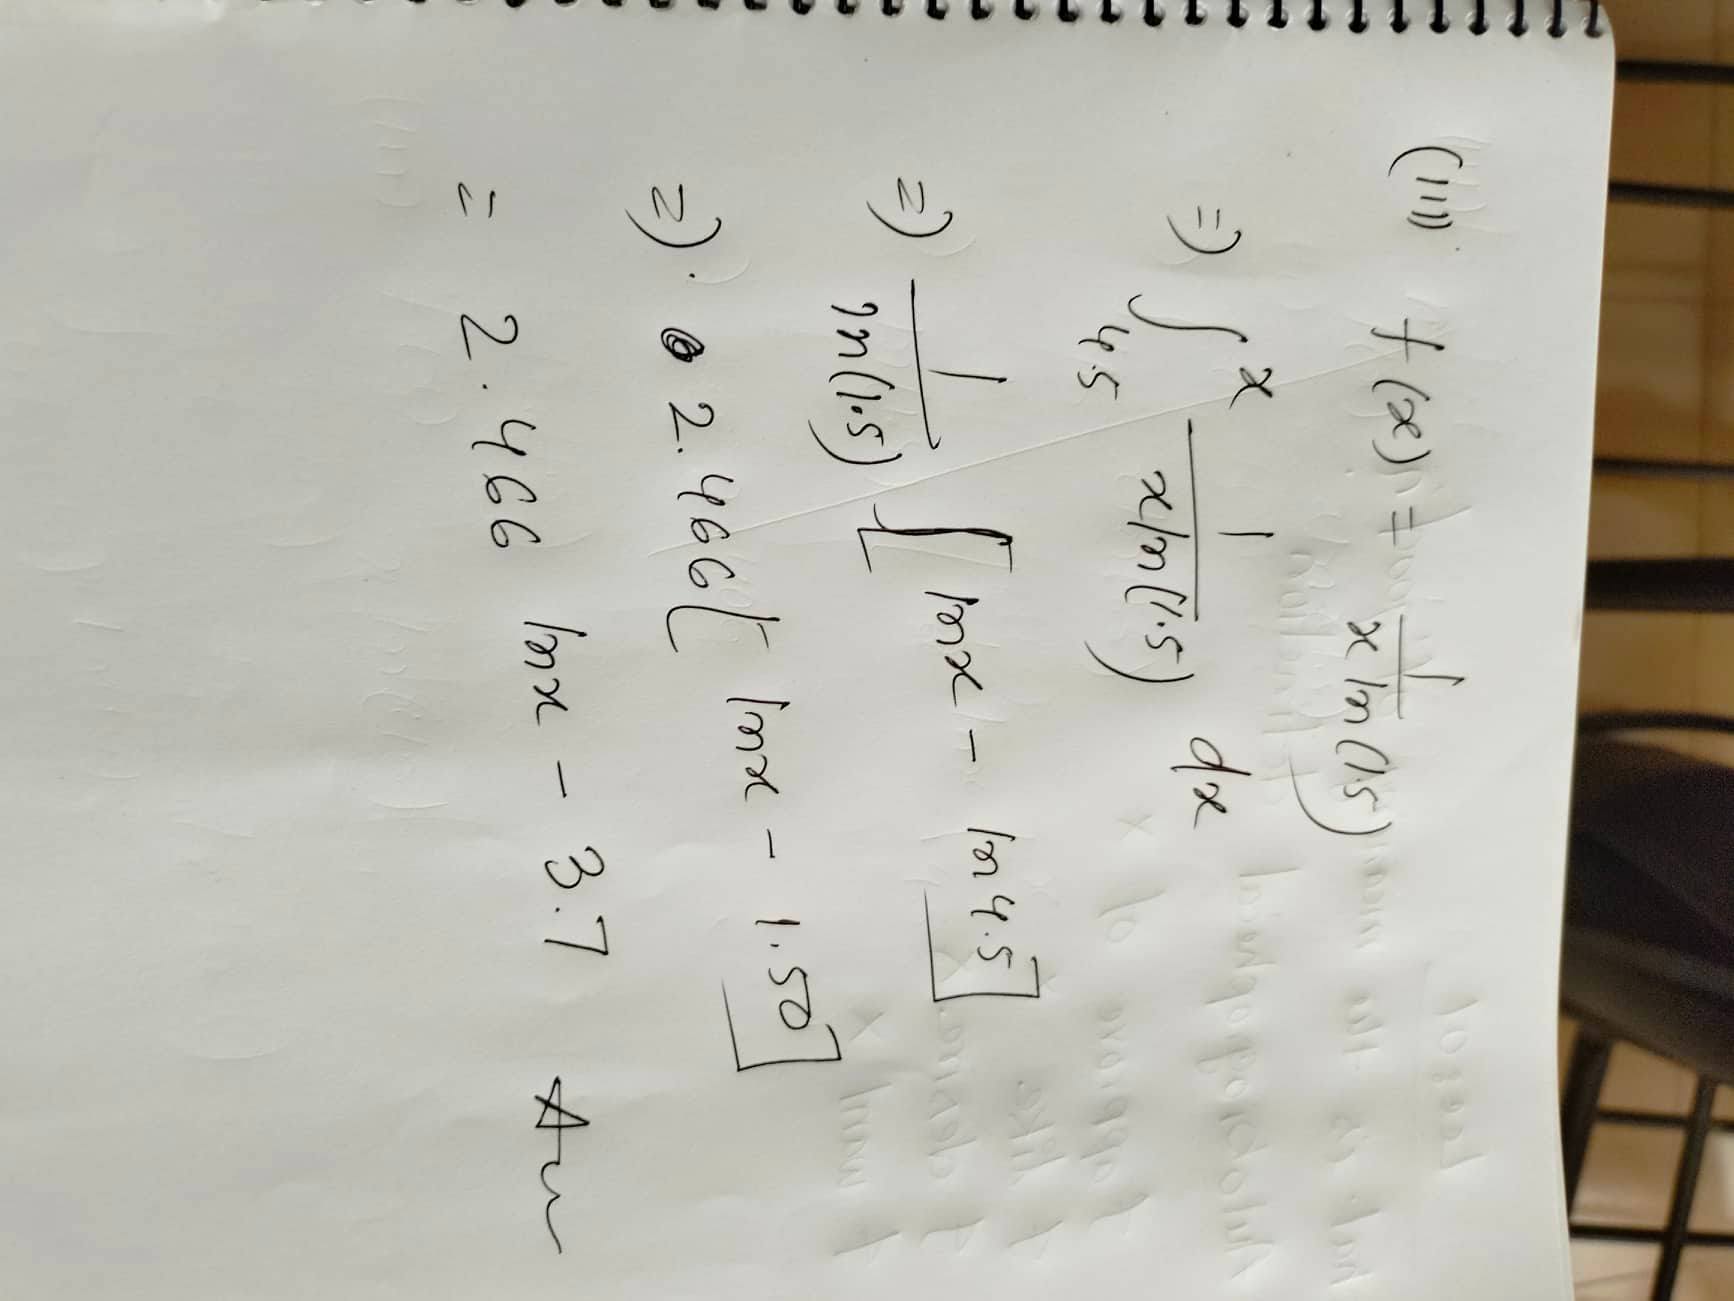 (iii) f(x) = 1/(x ln(1.5))
=) ∫_4.5^x 1/(x ln(1.5)) dx
=) 1/(ln(1.5)) [lnx - ln 4.5]
=) 2.466 [lnx - 1.50]
= 2.466 lnx - 3.7